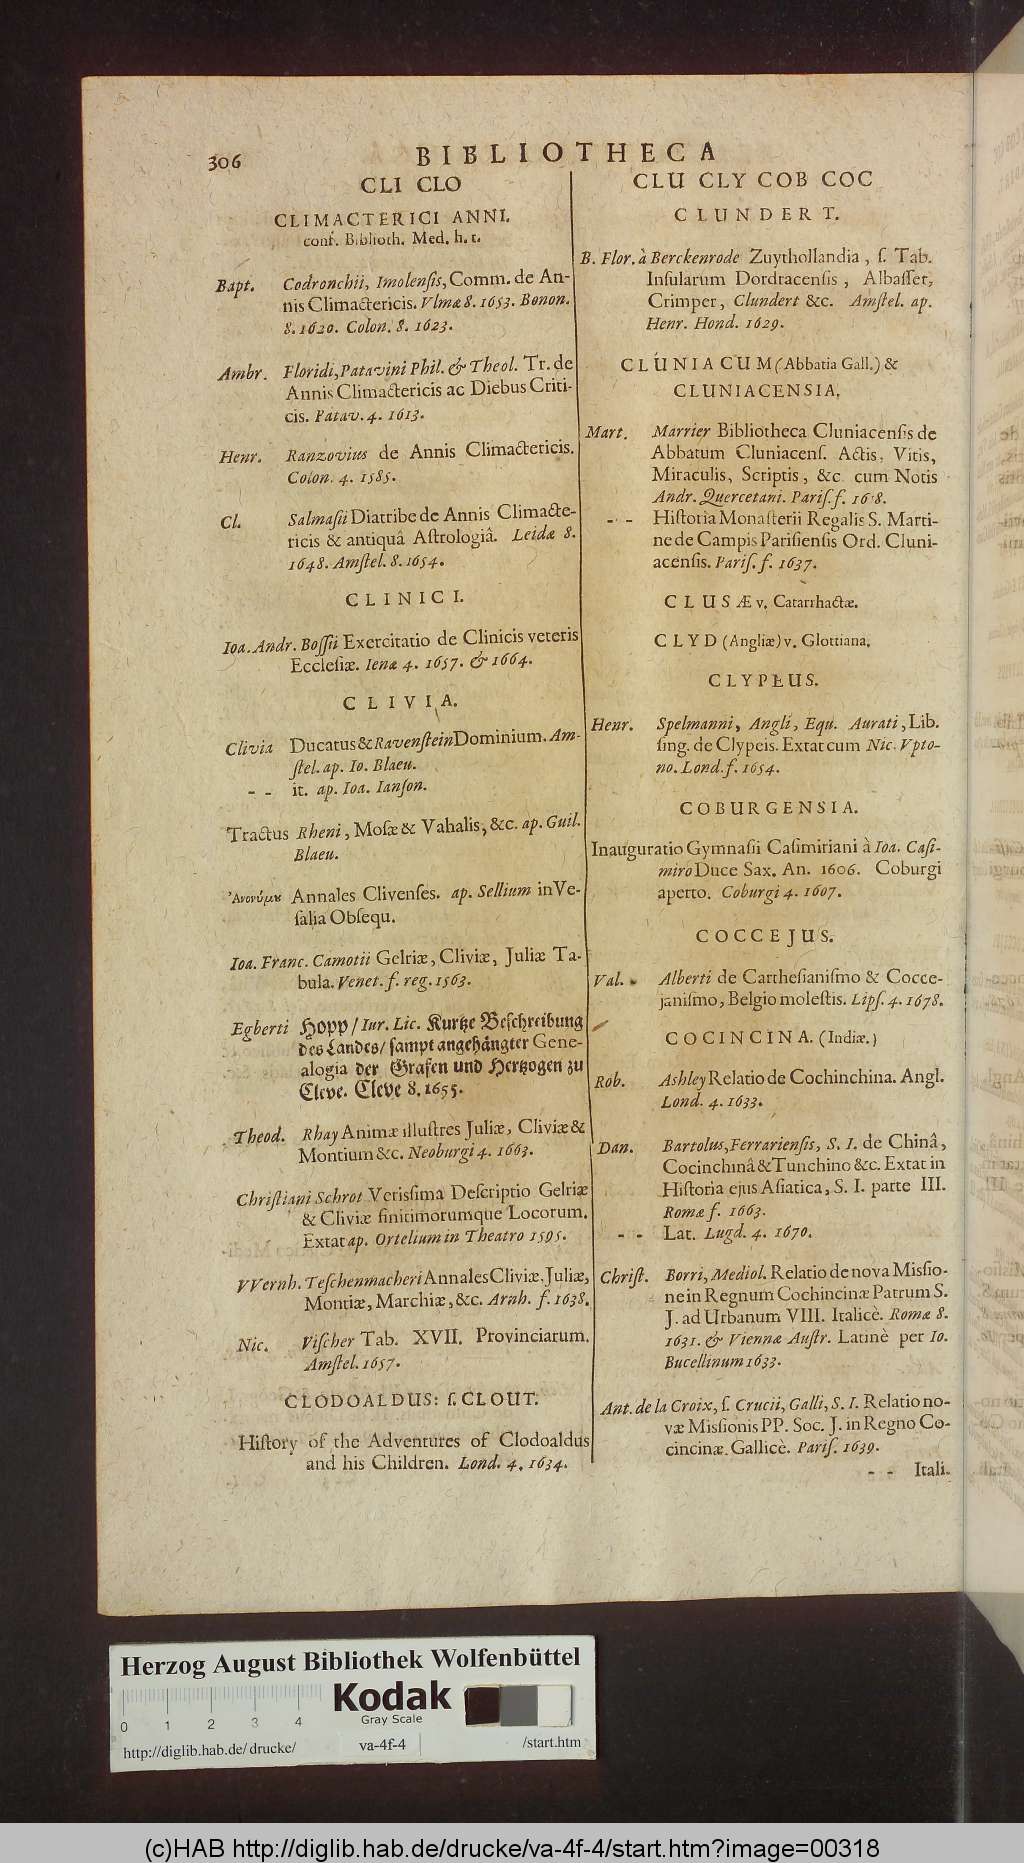 306
BIBLIOTHECA
CLI CLO
CLIMACTERICI ANNI.
conf. Biblioth. Med. h. t.
Bapt. Codronchii, Imolensis, Comm. de An-
nis Climactericis. Vlmæ 8. 1653. Bonon.
8. 1620. Colon. 8. 1623.
Ambr. Floridi, Patavini Phil. & Theol. Tr. de
Annis Climactericis ac Diebus Criti-
cis. Patav. 4. 1613.
Henr. Ranzovius de Annis Climactericis.
Colon. 4. 1585.
Cl. Salmasii Diatribe de Annis Climacte-
ricis & antiquâ Astrologiâ. Leidæ 8.
1648. Amstel. 8. 1654.
CLINICI.
Ioa. Andr. Bossii Exercitatio de Clinicis veteris
Ecclesiæ. Ienæ 4. 1657. & 1664.
CLIVIA.
Clivia Ducatus & Ravenstein Dominium. Am-
stel. ap. Io. Blaeu.
- - it. ap. Ioa. Ianson.
Tractus Rheni, Mosæ & Vahalis, &c. ap. Guil.
Blaeu.
Ἀνονύμȣ Annales Clivenses. ap. Sellium in Ve-
salia Obsequ.
Ioa. Franc. Camotii Gelriæ, Cliviæ, Juliæ Ta-
bula. Venet. f. reg. 1563.
Egberti Hopp / Iur. Lic. Kurtze Beschreibung
des Landes / sampt angehängter Gene-
alogia der Grafen und Hertzogen zu
Cleve. Cleve 8. 1655.
Theod. Rhay Animæ illustres Juliæ, Cliviæ &
Montium &c. Neoburgi 4. 1663.
Christiani Schrot Verissima Descriptio Gelriæ
& Cliviæ finitimorumque Locorum.
Extat ap. Ortelium in Theatro 1595.
VVernh. Teschenmacheri Annales Cliviæ, Juliæ,
Montiæ, Marchiæ, &c. Arnh. f. 1638.
Nic. Vischer Tab. XVII. Provinciarum.
Amstel. 1657.
CLODOALDUS: s. CLOUT.
History of the Adventures of Clodoaldus
and his Children. Lond. 4. 1634.
CLU CLY COB COC
CLUNDERT.
B. Flor. à Berckenrode Zuythollandia, s. Tab.
Insularum Dordracensis, Albasser,
Crimper, Clundert &c. Amstel. ap.
Henr. Hond. 1629.
CLUNIACUM (Abbatia Gall.) &
CLUNIACENSIA.
Mart. Marrier Bibliotheca Cluniacensis de
Abbatum Cluniacens. Actis, Vitis,
Miraculis, Scriptis, &c. cum Notis
Andr. Quercetani. Paris. f. 1618.
- - Historia Monasterii Regalis S. Marti-
ne de Campis Parisiensis Ord. Cluni-
acensis. Paris. f. 1637.
CLUSÆ v. Catarrhactæ.
CLYD (Angliæ) v. Glottiana.
CLYPEUS.
Henr. Spelmanni, Angli, Equ. Aurati, Lib.
sing. de Clypeis. Extat cum Nic. Vpto-
no. Lond. f. 1654.
COBURGENSIA.
Inauguratio Gymnasii Casimiriani à Ioa. Casi-
miro Duce Sax. An. 1606. Coburgi
aperto. Coburgi 4. 1607.
COCCEJUS.
Val. Alberti de Carthesianismo & Cocce-
janismo, Belgio molestis. Lips. 4. 1678.
COCINCINA. (Indiæ.)
Rob. Ashley Relatio de Cochinchina. Angl.
Lond. 4. 1633.
Dan. Bartolus, Ferrariensis, S. I. de Chinâ,
Cocinchinâ & Tunchino &c. Extat in
Historia ejus Asiatica, S. I. parte III.
Romæ f. 1663.
- - Lat. Lugd. 4. 1670.
Christ. Borri, Mediol. Relatio de nova Missio-
ne in Regnum Cochincinæ Patrum S.
J. ad Urbanum VIII. Italicè. Romæ 8.
1631. & Viennæ Austr. Latinè per Io.
Bucellinum 1633.
Ant. de la Croix, s. Crucii, Galli, S. I. Relatio no-
væ Missionis PP. Soc. J. in Regno Co-
cincinæ. Gallicè. Paris. 1639.
- - Itali.
Herzog August Bibliothek Wolfenbüttel
Kodak
Gray Scale
0 1 2 3 4
http://diglib.hab.de/drucke/ va-4f-4 /start.htm
(c)HAB http://diglib.hab.de/drucke/va-4f-4/start.htm?image=00318